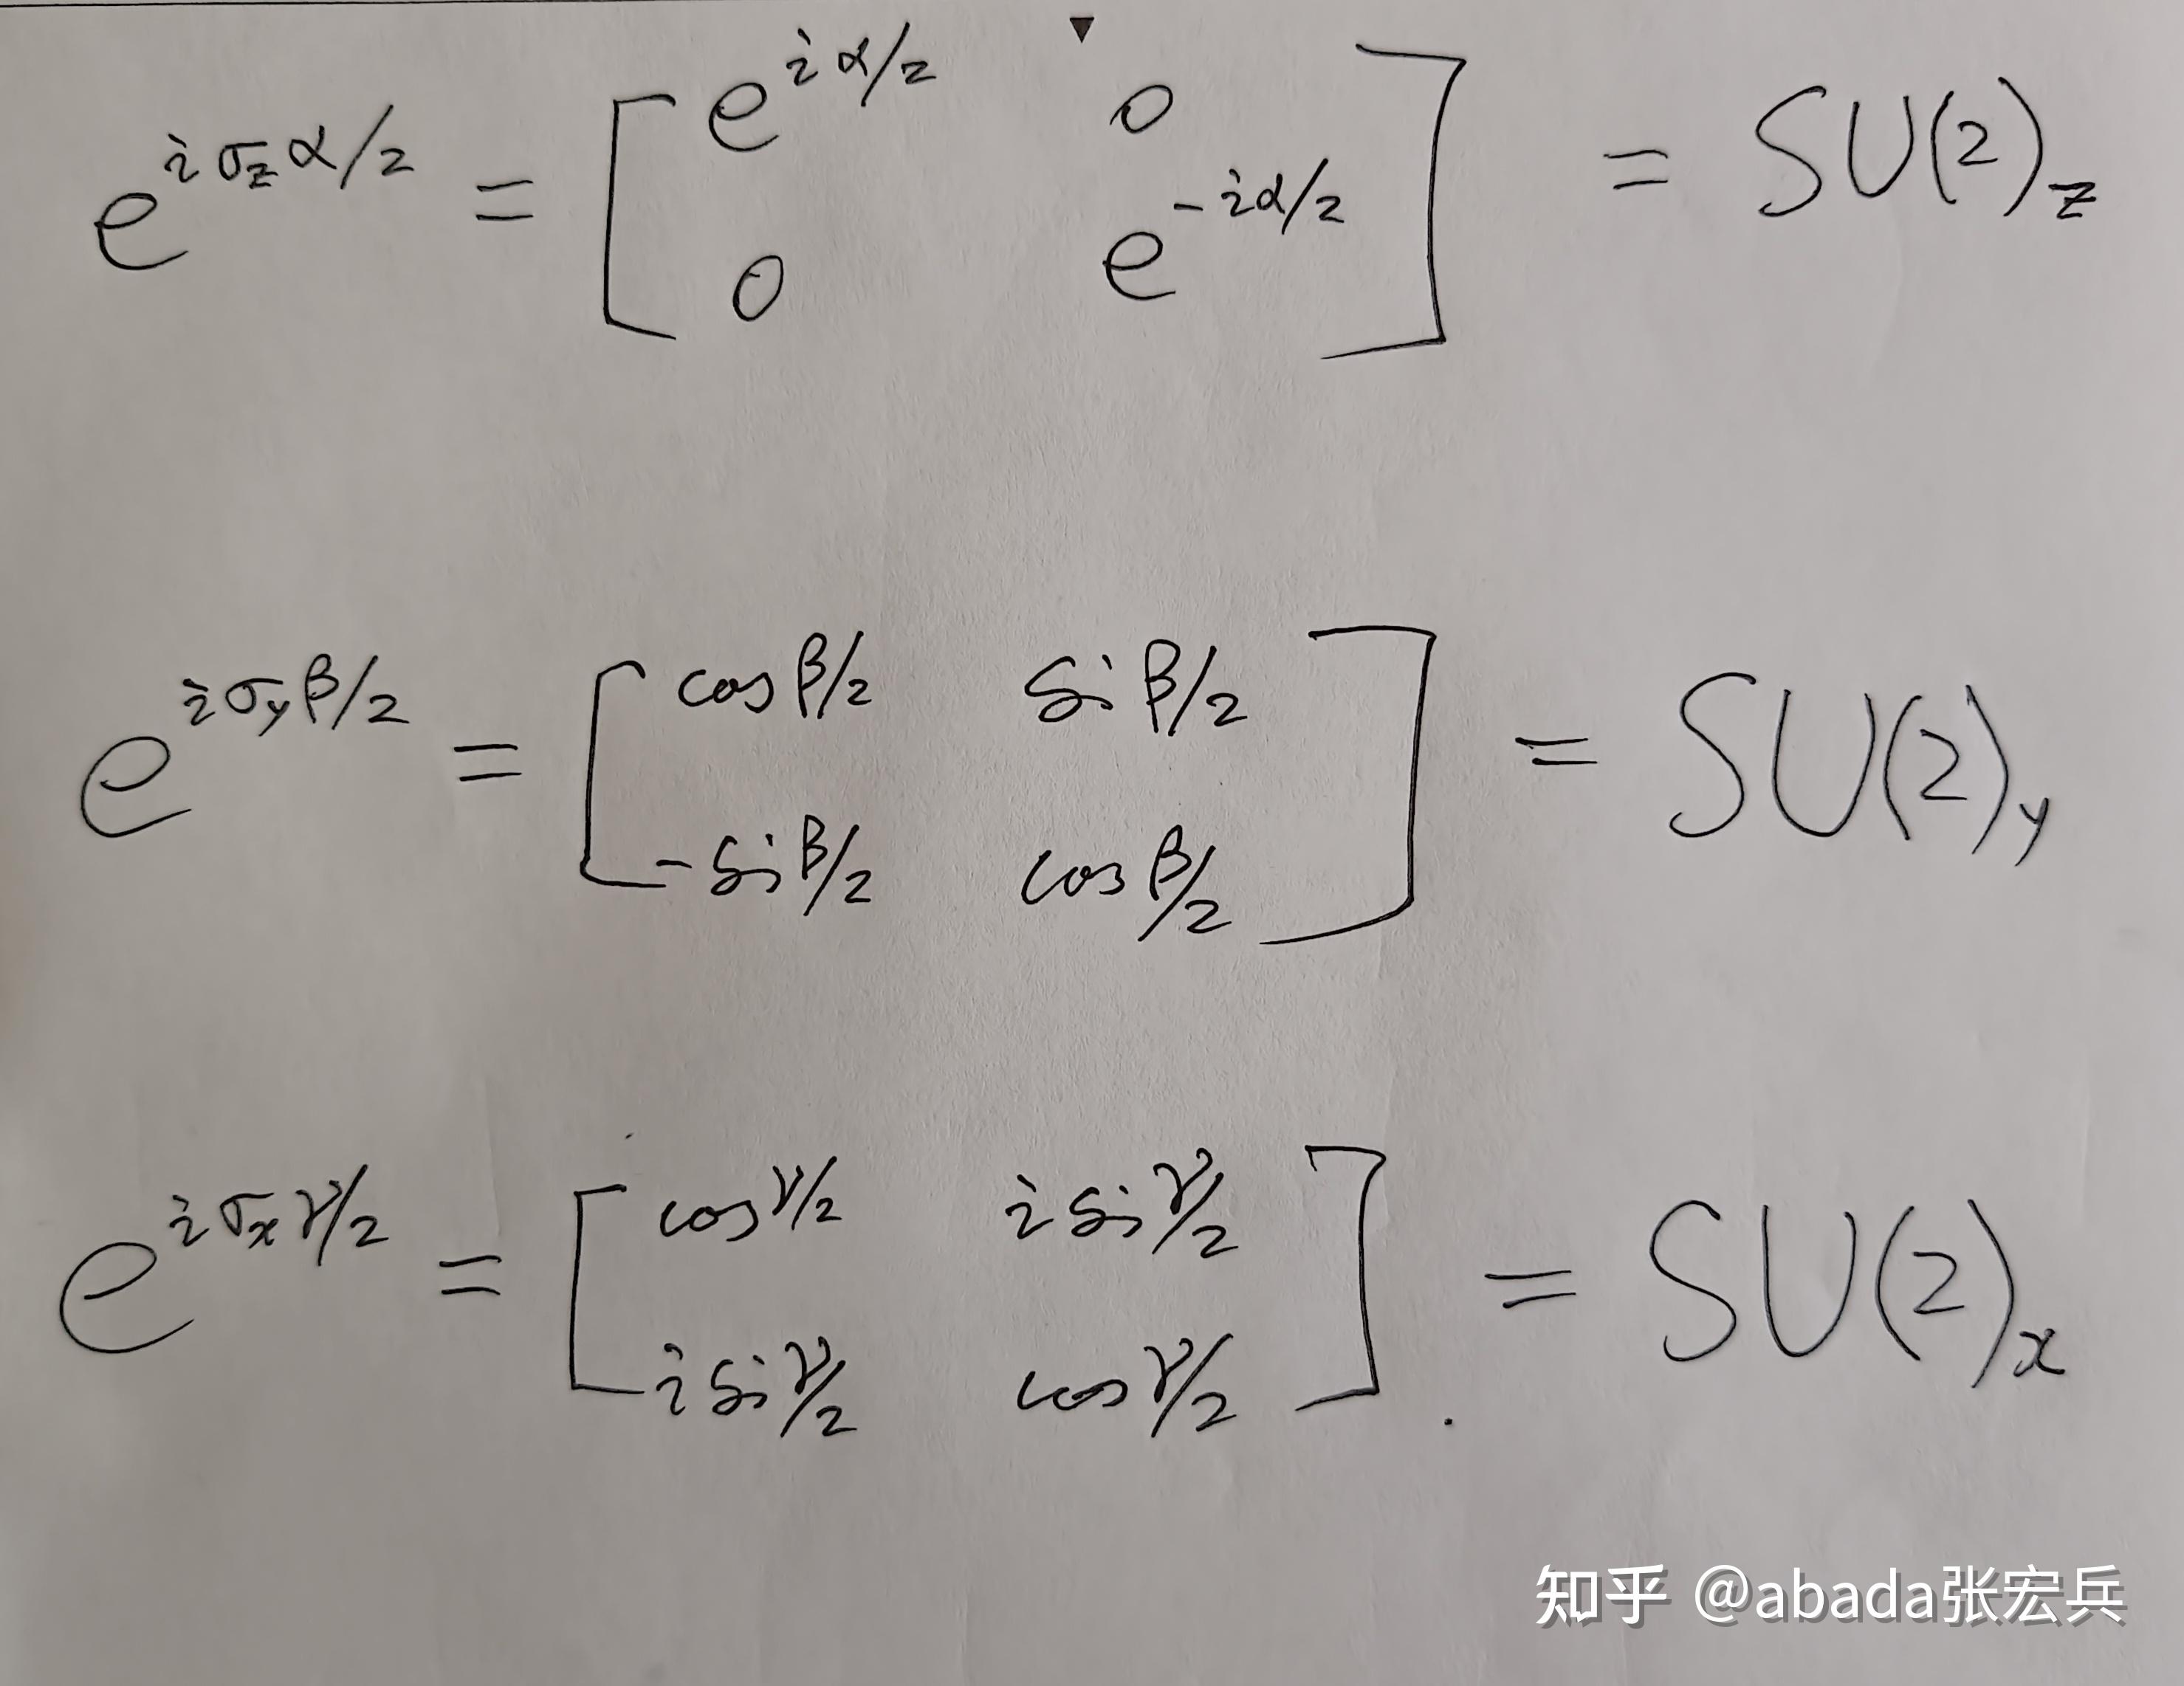 e^{iσ_z α/2} = [ e^{iα/2} 0 ; 0 e^{-iα/2} ] = SU(2)_z
e^{iσ_y β/2} = [ cos β/2 si β/2 ; -si β/2 cos β/2 ] = SU(2)_y
e^{iσ_x γ/2} = [ cos γ/2 i si γ/2 ; i si γ/2 cos γ/2 ] . = SU(2)_x
知乎 @abada张宏兵